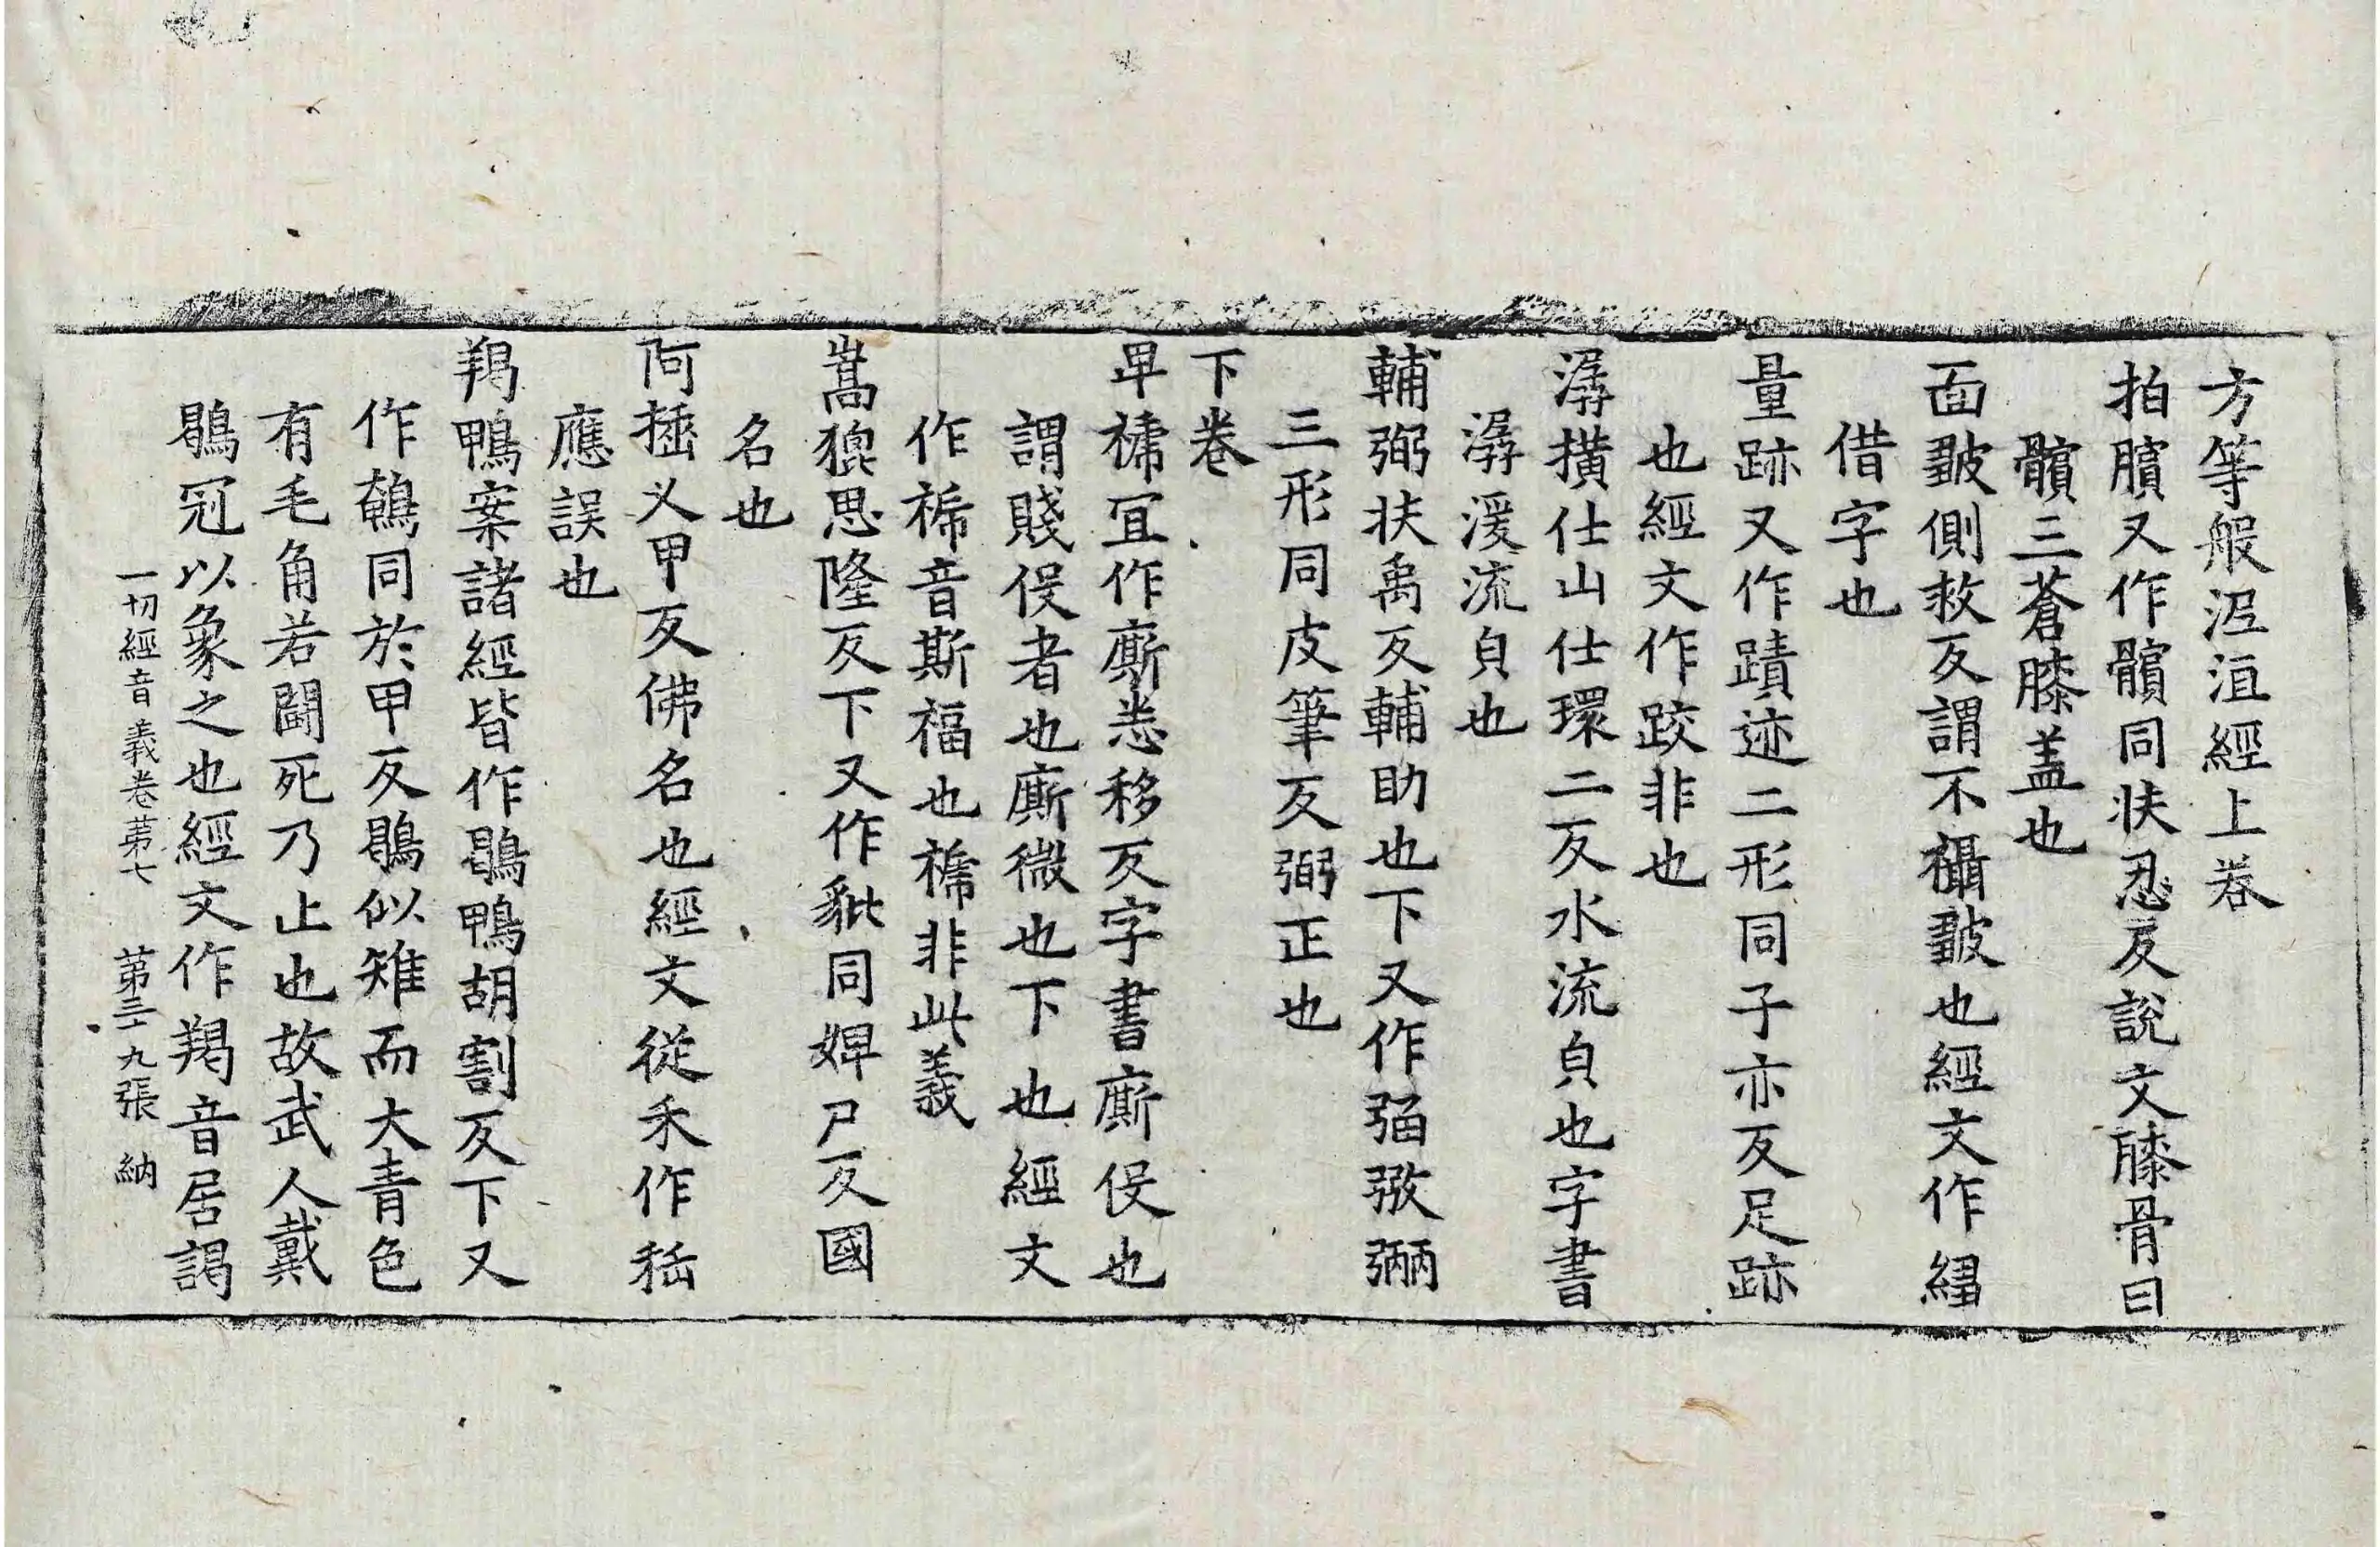 方等般泥洹經上卷
拍臏又作髕同扶忍反說文膝骨曰
髕三蒼膝盖也
面皺側救反謂不襵皺也經文作縐
借字也
量跡又作蹟迹二形同子亦反足跡
也經文作跤非也
潺撗仕山仕環二反水流皃也字書
潺湲流皃也
輔弼扶禹反輔助也下又作弻㢸弼
三形同皮筆反弼正也
下卷
卑禠冝作廝悉移反字書廝伇也
謂賤伇者也廝微也下也經文
作禠音斯福也禠非此義
嵩猽思隆反下又作豼同婢尸反國
名也
阿㨶乂甲反佛名也經文從禾作䅧
應誤也
羯鴨案諸經皆作鶡鴨胡割反下又
作䳌同於甲反鶡似雉而大青色
有毛角若鬪死乃止也故武人戴
鶡冠以象之也經文作羯音居謁
一切經音義卷苐七　苐三十九張　納